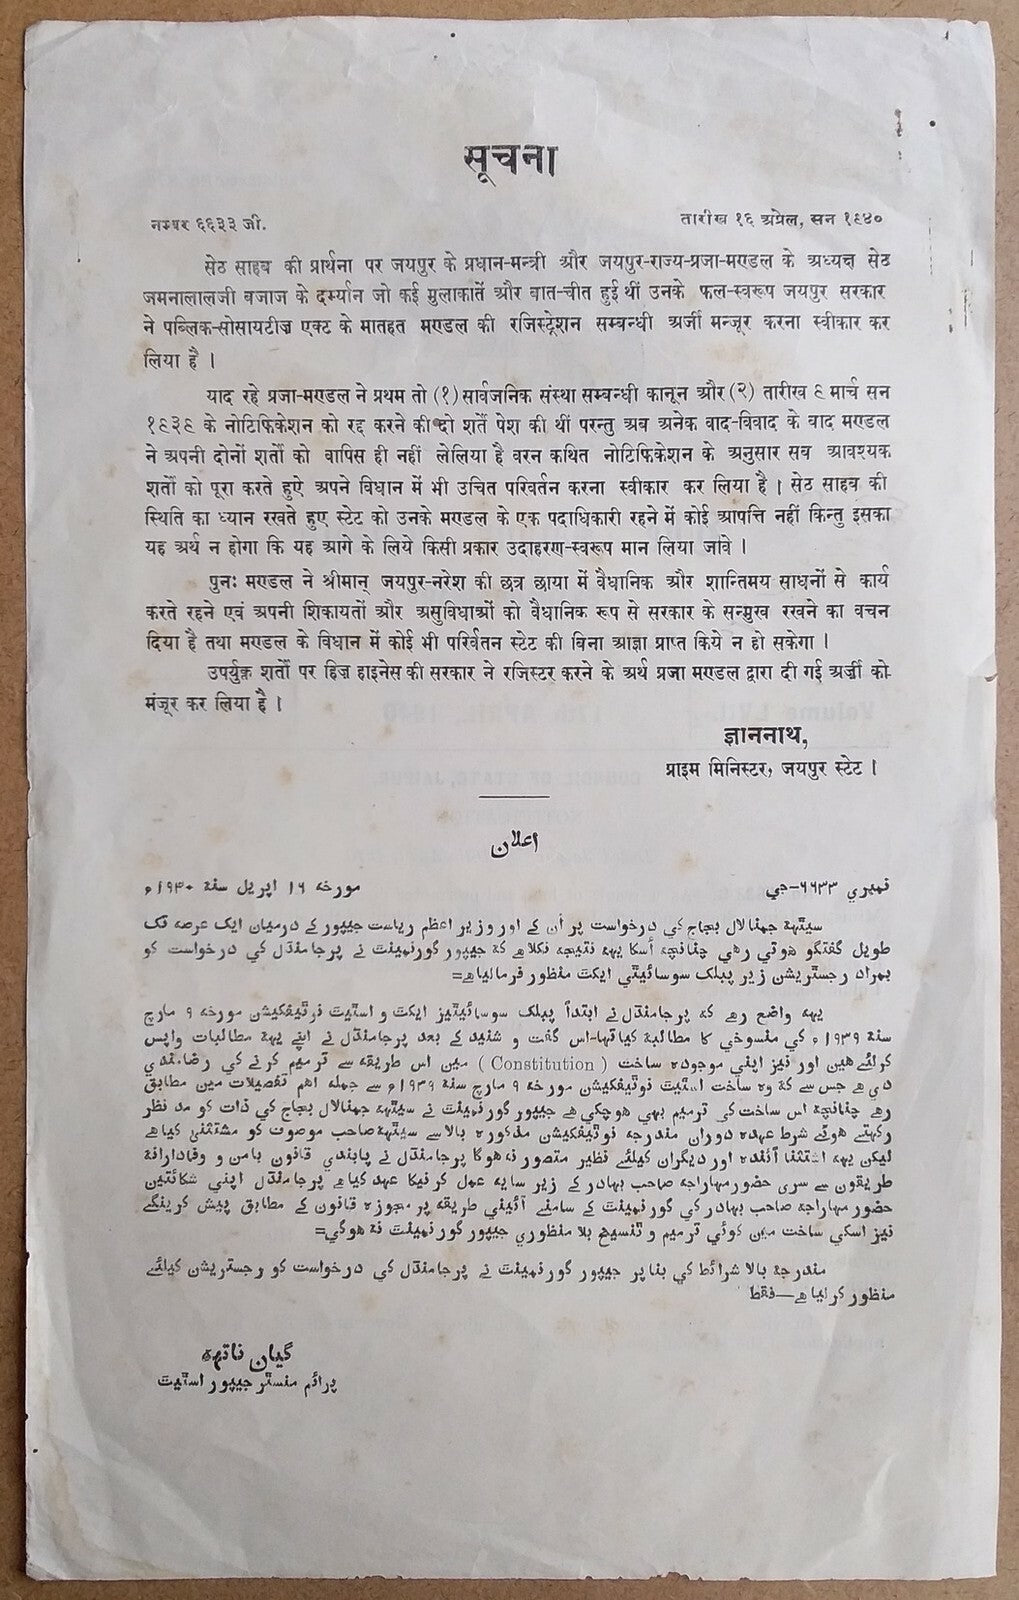 सूचना
नम्बर ६६३३ जी.
तारीख १६ अप्रेल, सन १९४०
सेठ साहब की प्रार्थना पर जयपुर के प्रधान-मन्त्री और जयपुर-राज्य-प्रजा-मण्डल के अध्यक्ष सेठ
जमनालालजी बजाज के दर्म्यान जो कई मुलाकातें और बात-चीत हुई थीं उनके फल-स्वरूप जयपुर सरकार
ने पब्लिक-सोसायटीज़ एक्ट के मातहत मण्डल की रजिस्ट्रेशन सम्बन्धी अर्जी मन्जूर करना स्वीकार कर
लिया है ।
याद रहे प्रजा-मण्डल ने प्रथम तो (१) सार्वजनिक संस्था सम्बन्धी कानून और (२) तारीख ९ मार्च सन
१९३९ के नोटिफिकेशन को रद्द करने की दो शर्तें पेश की थीं परन्तु अब अनेक वाद-विवाद के बाद मण्डल
ने अपनी दोनों शर्तों को वापिस ही नहीं लेलिया है वरन कथित नोटिफिकेशन के अनुसार सब आवश्यक
शर्तों को पूरा करते हुऐ अपने विधान में भी उचित परिवर्तन करना स्वीकार कर लिया है । सेठ साहब की
स्थिति का ध्यान रखते हुए स्टेट को उनके मण्डल के एक पदाधिकारी रहने में कोई आपत्ति नहीं किन्तु इसका
यह अर्थ न होगा कि यह आगे के लिये किसी प्रकार उदाहरण-स्वरूप मान लिया जावे ।
पुनः मण्डल ने श्रीमान् जयपुर-नरेश की छत्र छाया में वैधानिक और शान्तिमय साधनों से कार्य
करते रहने एवं अपनी शिकायतों और असुविधाओं को वैधानिक रूप से सरकार के सन्मुख रखने का वचन
दिया है तथा मण्डल के विधान में कोई भी परिर्वतन स्टेट की बिना आज्ञा प्राप्त किये न हो सकेगा ।
उपर्युक्त शर्तों पर हिज़ हाइनेस की सरकार ने रजिस्टर करने के अर्थ प्रजा मण्डल द्वारा दी गई अर्ज़ी को
मंजूर कर लिया है ।
ज्ञाननाथ,
प्राइम मिनिस्टर, जयपुर स्टेट ।
اعلان
نمبري ۶۶۳۳-جي
مورخہ ۱۶ اپريل سنہ ۱۹۴۰ء
سيٹھہ جمنالال بجاج کي درخواست پر اُن کے اور وزير اعظم رياست جيپور کے درميان ايک عرصہ تک
طويل گفتگو هوتي رهي چنانچہ اُسکا يہہ نتيجہ نکلا هے کہ جيپور گورنمينٹ نے پرجامنڈل کي درخواست کو
بمراد رجسٹريشن زير پبلک سوسائيٹي ايکٹ منظور فرماليا هے=
يہہ واضح رهے کہ پرجامنڈل نے ابتداً پبلک سوسائيٹيز ايکٹ و اسٹيٹ نوٹيفکيشن مورخہ ۹ مارچ
سنہ ۱۹۳۹ء کي منسوخي کا مطالبہ کيا تها-اس گفت و شنيد کے بعد پرجامنڈل نے اپنے يہہ مطالبات واپس
کرلئے هين اور نيز اپني موجودہ ساخت ( Constitution ) مين اس طريقہ سے ترميم کرنے کي رضامندي
دي هے جس سے کہ وہ ساخت اسٹيٹ نوٹيفکيشن مورخہ ۹ مارچ سنہ ۱۹۳۹ء سے جملہ اهم تفصيلات مين مطابق
رهے چنانچہ اس ساخت کي ترميم بهي هوچکي هے جيپور گورنمينٹ نے سيٹھہ جمنالال بجاج کي ذات کو مد نظر
رکهتے هوئے شرط عهدہ دوران مندرجہ نوٹيفکيشن مذکورہ بالا سے سيٹھہ صاحب موصوف کو مشتثنیٰ کيا هے
ليکن يہہ اشتثنا آئندہ اور ديگران کيلئے نظير متصور نہ هوگا پرجامنڈل نے پابندي قانون بامن و وفادارانہ
طريقون سے سري حضور مہاراجہ صاحب بہادر کے زير سايہ عمل کرنيکا عهد کيا هے پرجامنڈل اپني شکائتين
حضور مہاراجہ صاحب بہادر کي گورنمينٹ کے سامنے آئيني طريقہ پر مجوزہ قانون کے مطابق پيش کرينگے
نيز اسکي ساخت مين کوئي ترميم و تنسيخ بلا منظوري جيپور گورنمينٹ نہ هوگي=
مندرجہ بالا شرائط کي بنا پر جيپور گورنمينٹ نے پرجامنڈل کي درخواست کو رجسٹريشن کيلئے
منظور کرليا هے—فقط
گيان ناتهہ
پرائم منسٹر جيپور اسٹيٹ